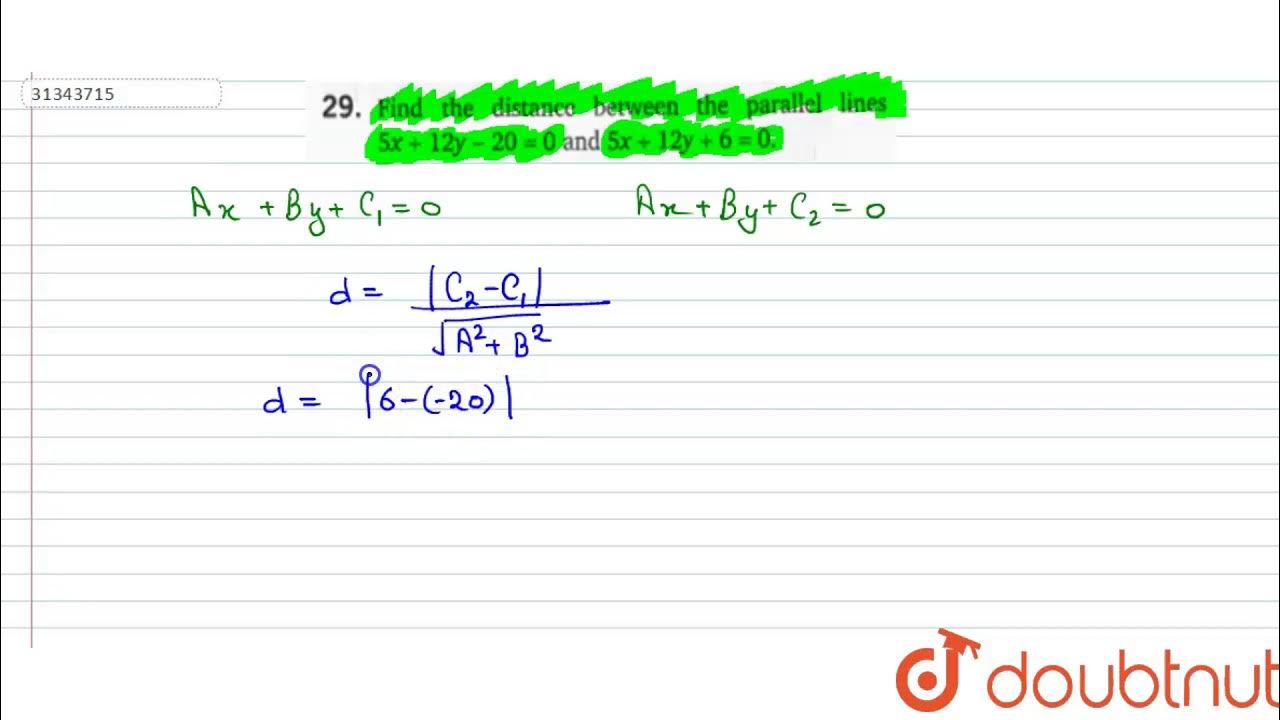 31343715
29. Find the distance between the parallel lines
5x + 12y – 20 = 0 and 5x + 12y + 6 = 0.
Ax + By + C₁ = 0 Ax + By + C₂ = 0
d = |C₂ - C₁|
√A² + B²
d = |6 - (-20)|
doubtnut